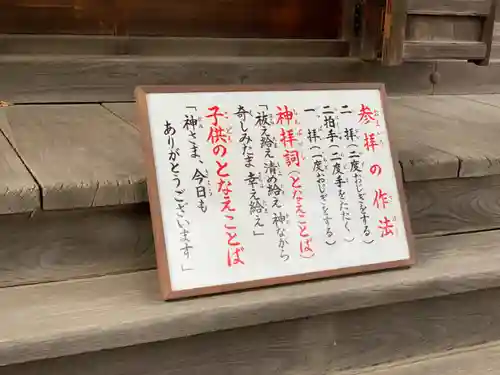 参拝の作法
二　拝（二度おじぎをする）
二拍手（二度手をたたく）
一　拝（一度おじぎをする）
神拝詞（となえことば）
「祓え給え 清め給え 神ながら
奇しみたま 幸え給え」
子供のとなえことば
「神さま、今日も
ありがとうございます」